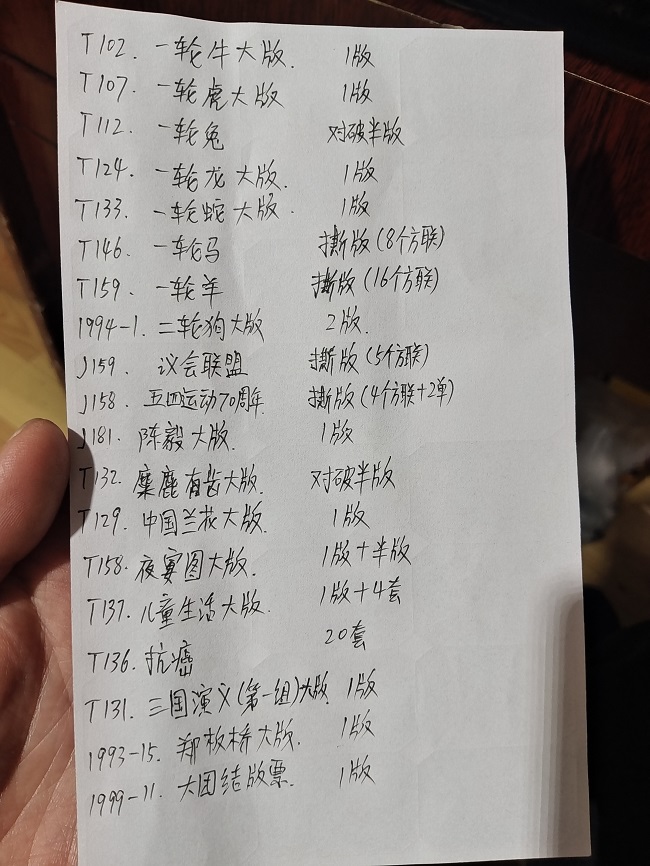 T102. 一轮牛大版. 1版
T107. 一轮虎大版 1版
T112. 一轮兔 对破半版
T124. 一轮龙大版. 1版
T133. 一轮蛇大版. 1版
T146. 一轮马 撕版(8个方联)
T159. 一轮羊 撕版(16个方联)
1994-1. 二轮狗大版 2版.
J159. 议会联盟 撕版(5个方联)
J158. 五四运动70周年 撕版(4个方联+2单)
J181. 陈毅大版. 1版
T132. 麋鹿有齿大版. 对破半版
T129. 中国兰花大版. 1版
T158. 夜宴图大版. 1版+半版
T137. 儿童生活大版. 1版+4套
T136. 抗癌 20套
T131. 三国演义(第一组)大版. 1版
1993-15. 郑板桥大版. 1版
1999-11. 大团结版票. 1版